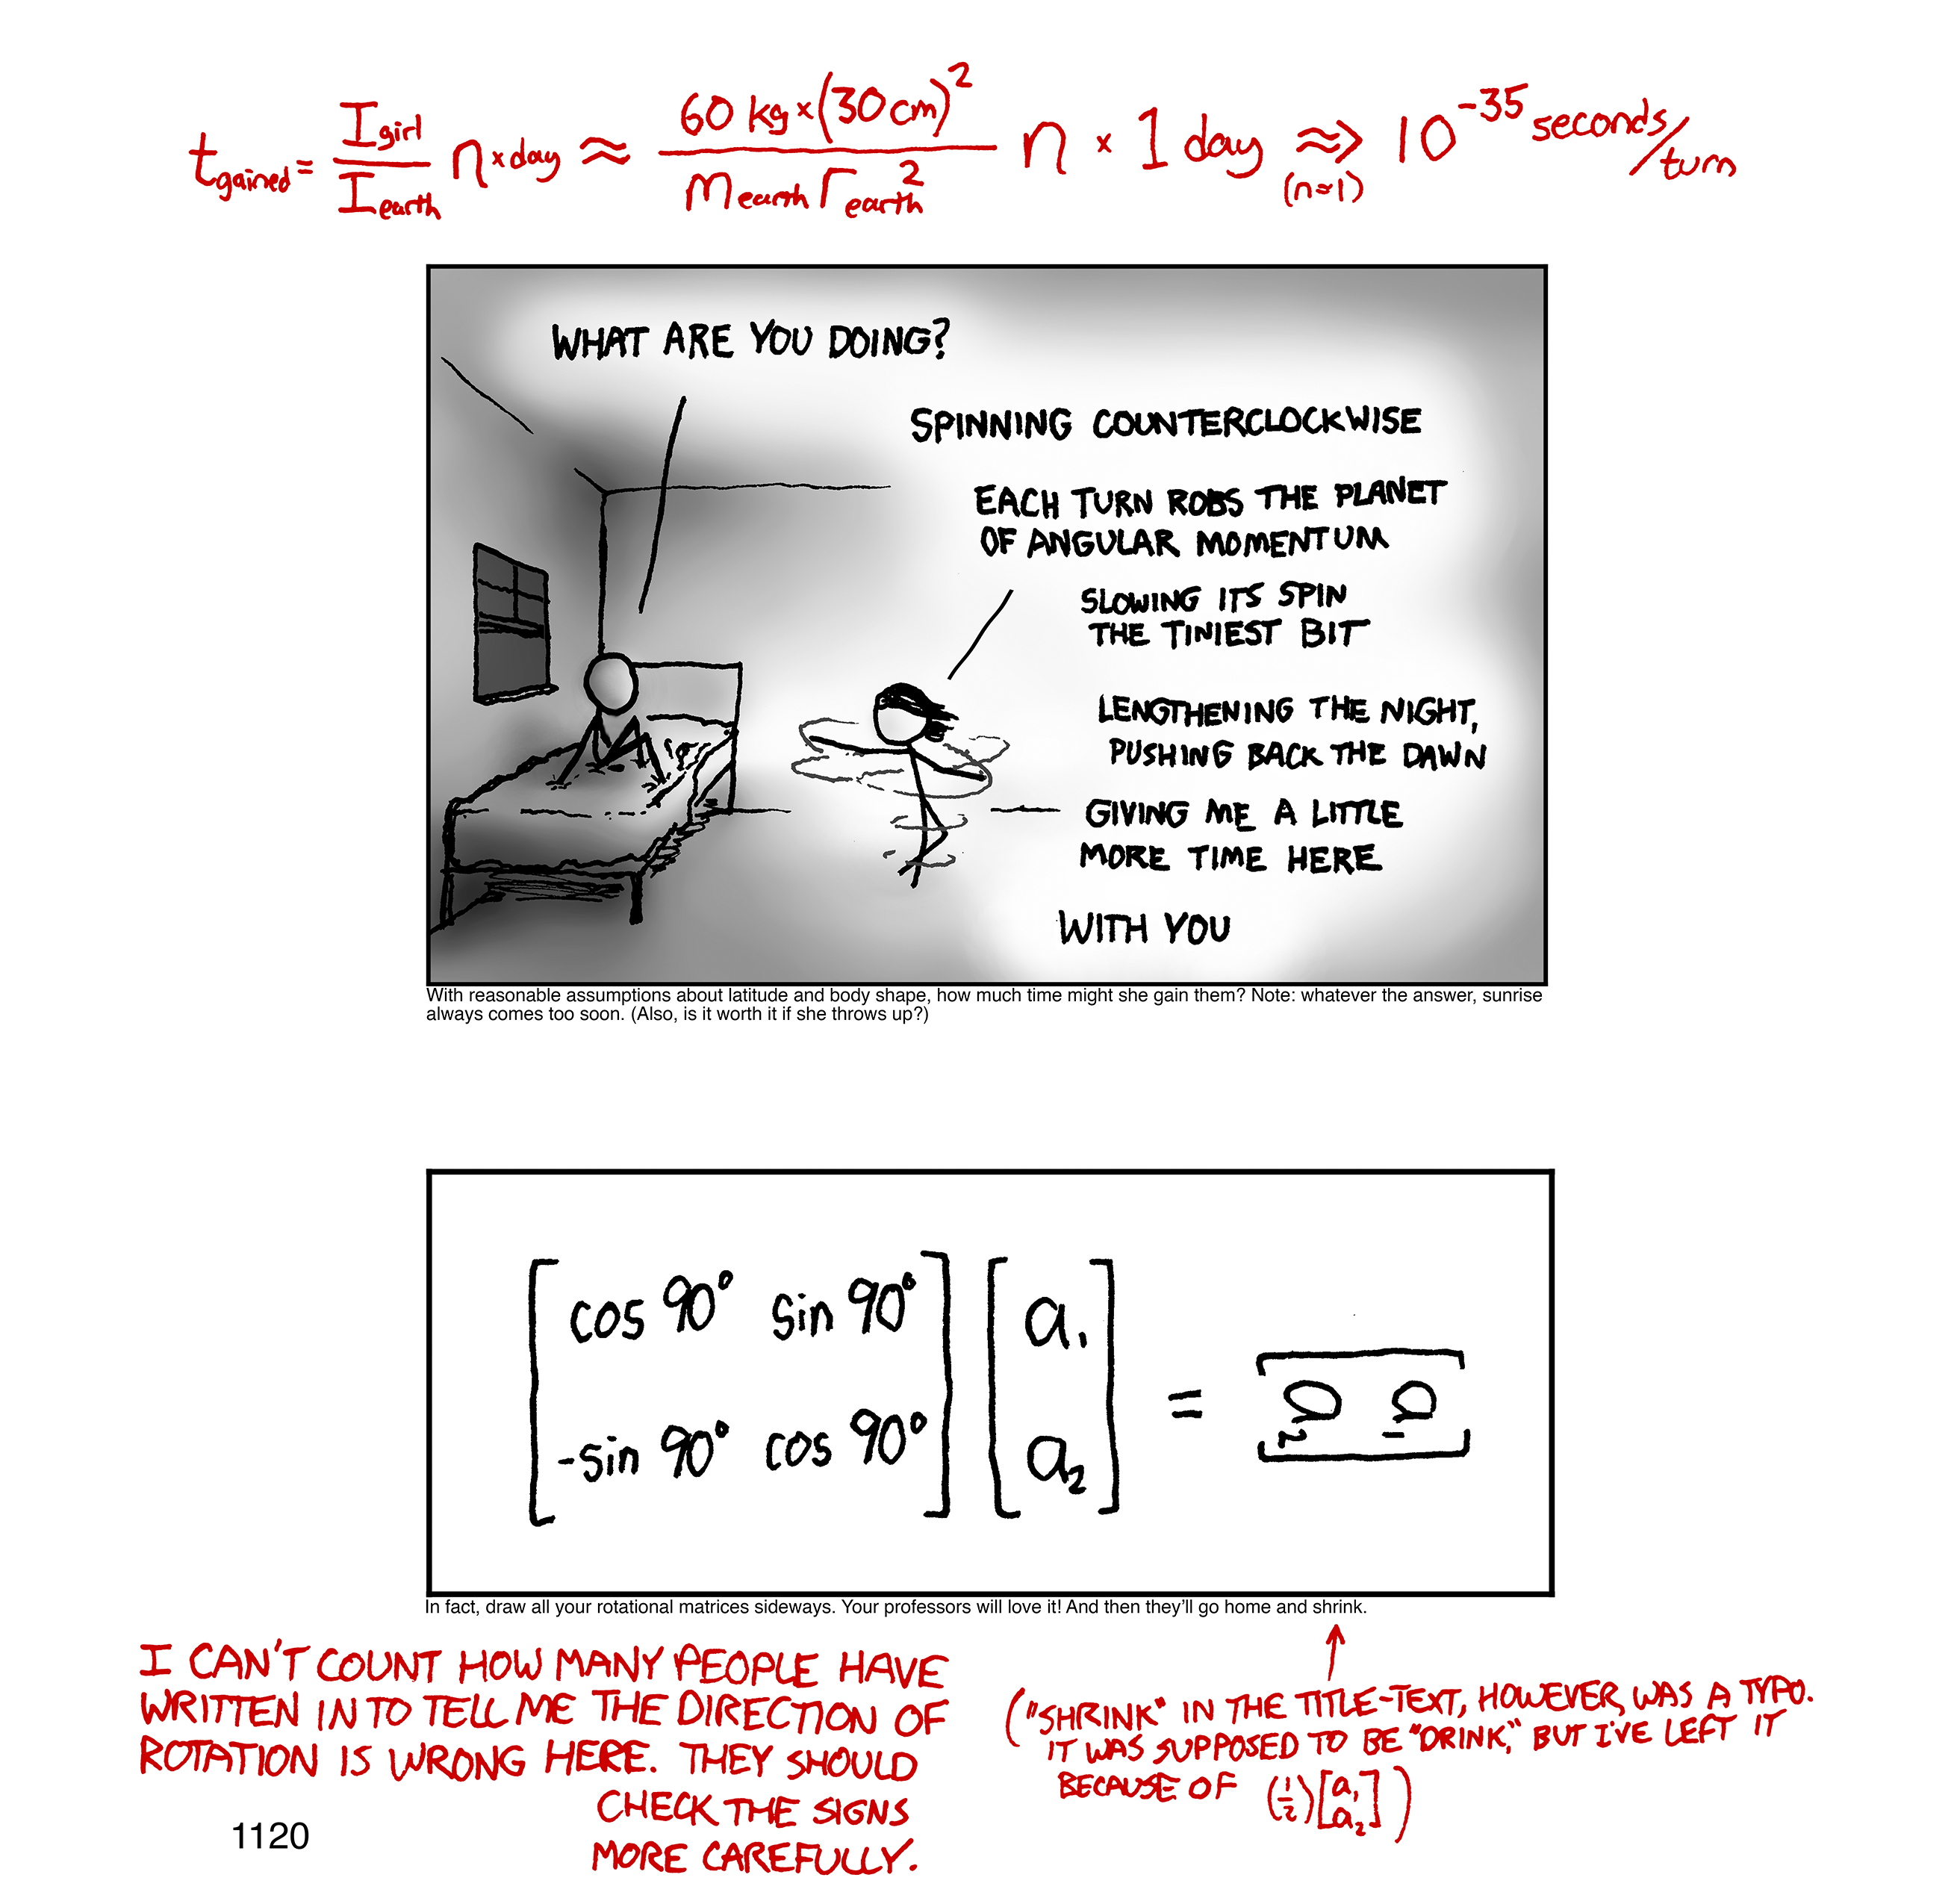 t gained = I girl / I earth n × day ≈ 60 kg × (30 cm)² / m earth r earth² n × 1 day ≈> (n≈1) 10⁻³⁵ seconds/turn
WHAT ARE YOU DOING?
SPINNING COUNTERCLOCKWISE
EACH TURN ROBS THE PLANET
OF ANGULAR MOMENTUM
SLOWING ITS SPIN
THE TINIEST BIT
LENGTHENING THE NIGHT,
PUSHING BACK THE DAWN
GIVING ME A LITTLE
MORE TIME HERE
WITH YOU
With reasonable assumptions about latitude and body shape, how much time might she gain them? Note: whatever the answer, sunrise
always comes too soon. (Also, is it worth it if she throws up?)
[cos 90° sin 90°] [a₁]
[-sin 90° cos 90°] [a₂] = [a₂ a₁]
In fact, draw all your rotational matrices sideways. Your professors will love it! And then they'll go home and shrink.
I CAN'T COUNT HOW MANY PEOPLE HAVE
WRITTEN IN TO TELL ME THE DIRECTION OF
ROTATION IS WRONG HERE. THEY SHOULD
CHECK THE SIGNS
MORE CAREFULLY.
("SHRINK" IN THE TITLE-TEXT, HOWEVER, WAS A TYPO.
IT WAS SUPPOSED TO BE "DRINK," BUT I'VE LEFT IT
BECAUSE OF (1/2)[a₁ a₂])
1120